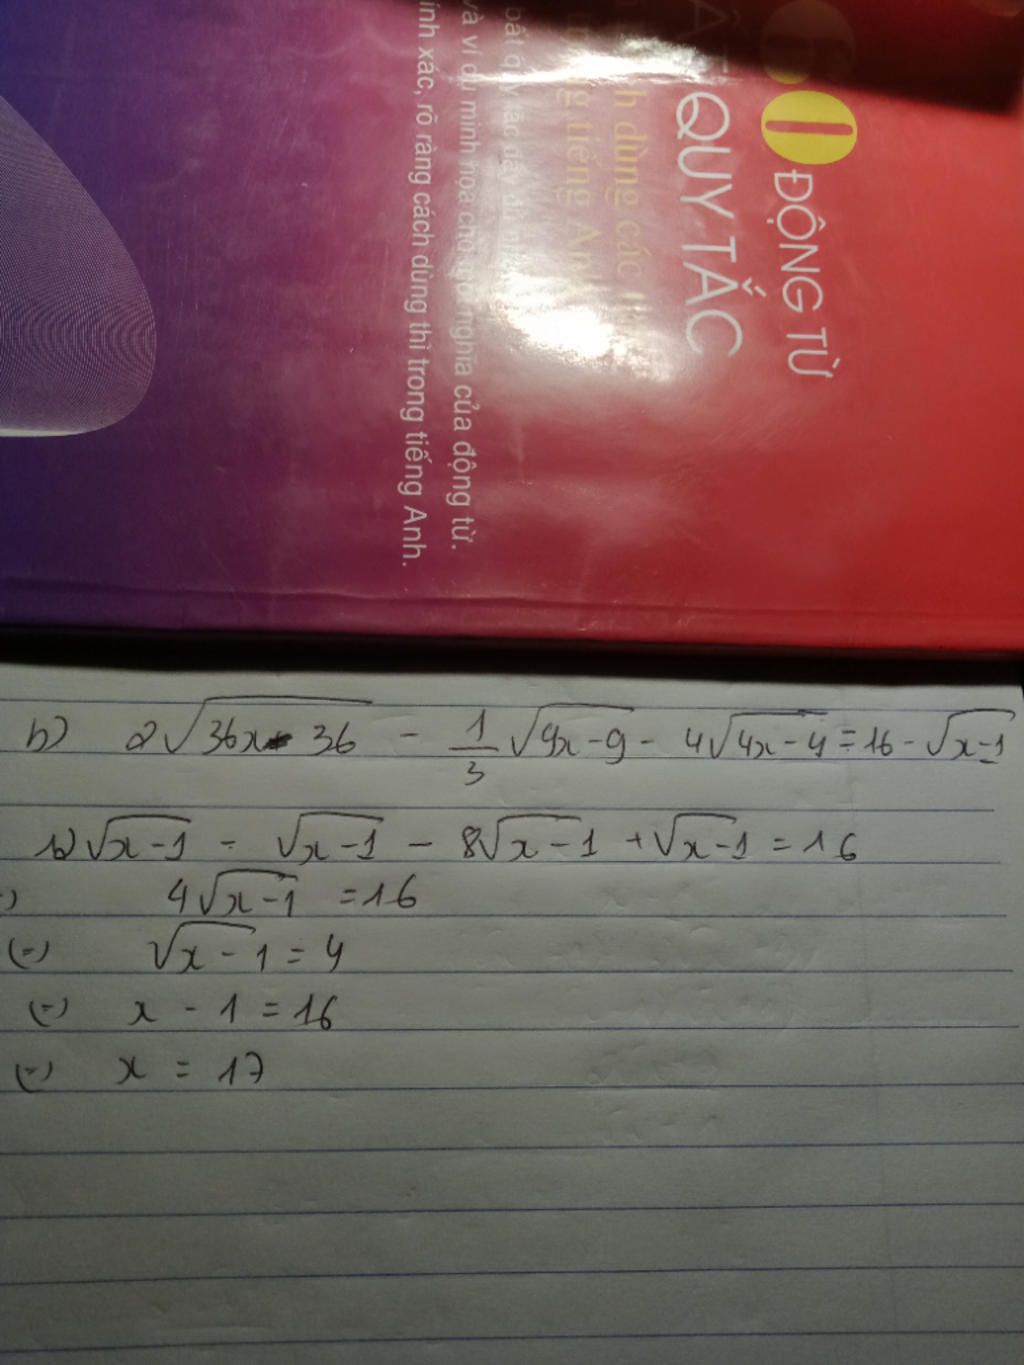 ĐỘNG TỪ
QUY TẮC
dùng các
tiếng Anh
và ví dụ minh họa cho nghĩa của động từ.
rõ ràng cách dùng thì trong tiếng Anh.
b) 2√36x - 36 - 1/3 √9x - 9 - 4√4x - 4 = 16 - √x - 1
12√x - 1 - √x - 1 - 8√x - 1 + √x - 1 = 16
4√x - 1 = 16
(=) √x - 1 = 4
(=) x - 1 = 16
(=) x = 17